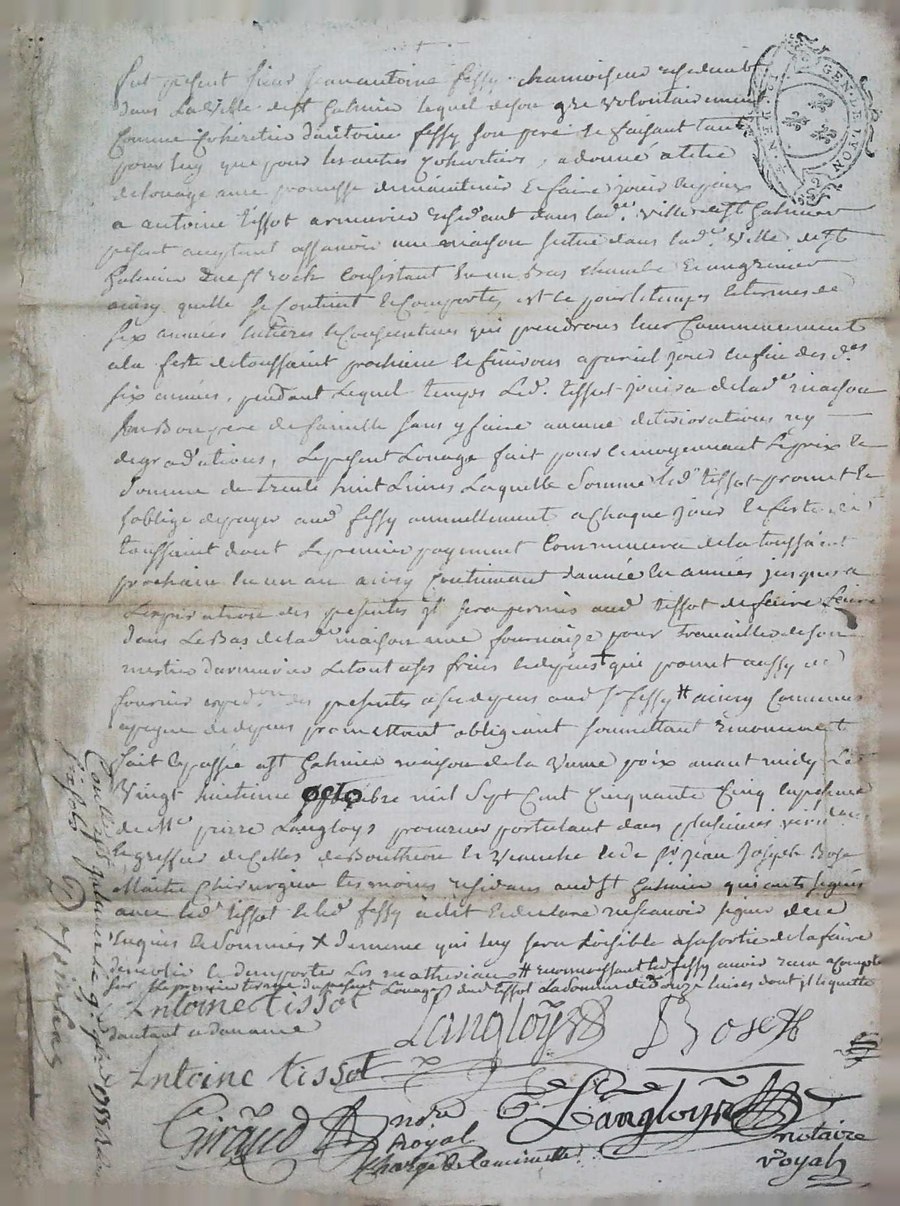 GEN. DE LYON
fut present sieur jean antoine fessy chamoiseur residant
dans la ville de st Galmier lequel de son gre volontairement
comme coheritier d'antoine fessy son pere se faisant tant
pour luy que pour les autres coheritiers, a donné a titre
de louage avec promesse de maintenir et faire jouir
a antoine tissot armurier residant dans lad.e ville de st Galmier
present acceptant assavoir une maison scitue dans lad.e ville de st
Galmier rue st rock consistant en un bas chambre et un grenier
ainsy quelle se contient et comporte, est ce pour le temps et termes de
six années entieres et consecutives qui prendront leur commencement
a la feste de toussaint prochaine et finiront a pareil jour en fin des d.es
six années, pendant lequel temps led. tissot jouira de lad.e maison
en bon pere de famille sans y faire aucune deteriorations ny
degradations, le present louage fait pour et moyennant le prix et
somme de trente huit livres laquelle somme led. tissot promet et
soblige de payer aud. fessy annuellement a chaque jour et feste de
toussaint dont le premier payement commencera de la toussaint
prochain en un an ainsy continuant d'année en années jusques a
l'expiration des presentes, il sera permis aud. tissot de faire
dans le bas de lad.e maison une fournaise pour travailler de son
mestier d'armurier le tout a ses frais et depens + qui promet aussy de
fournir exped.on des presentes a ses depens aud. sr fessy # ainsy convenus
a peyne de depens promettant obligeant soumettant renonceant
fait et passé a st Galmier maison de la veuve poix avant midy le
vingt huitieme octobre mil sept cent cinquante cinq en presence
de Me pierre Langloys procureur postulant dans plusieurs
et greffier de celles de Bouthéon et Veauche et de sr jean joseph Rose
Maitre chirurgien tesmoins residans aud. st Galmier qui ont signés
avec led. tissot et led. fessy a dit et declaré ne scavoir signer de ce
enquis et sommés + dememe qui luy sera loisible a sa sortie de la faire
demolir et demporter les matheriaux # reconnoissant led. fessy avoir recu a compte
sur le premier terme du present louage dud. tissot la somme de douze livres dont il le quitte
Antoine tissot
d'autant
Langloys Rose
Antoine tissot
Giraud nore Royal
chargé de la minutte
Langloys notaire
royal
Controllé à st Galmier le 9 1755